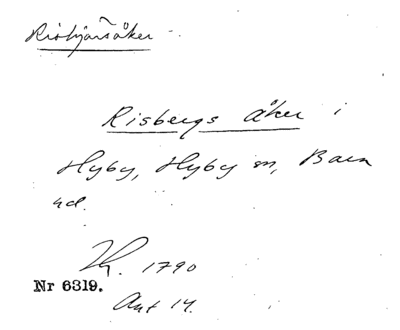 Risbjärsåker
Risbergs åker i
Hyby, Hyby sn, Bara
hd.
Lk. 1790
Nr 6319.
Akt 14.